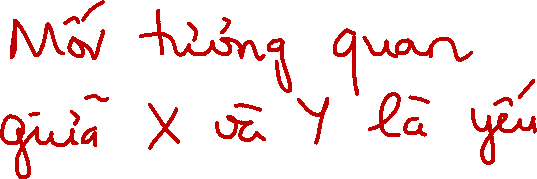 Mối tương quan
giữa X và Y là yếu